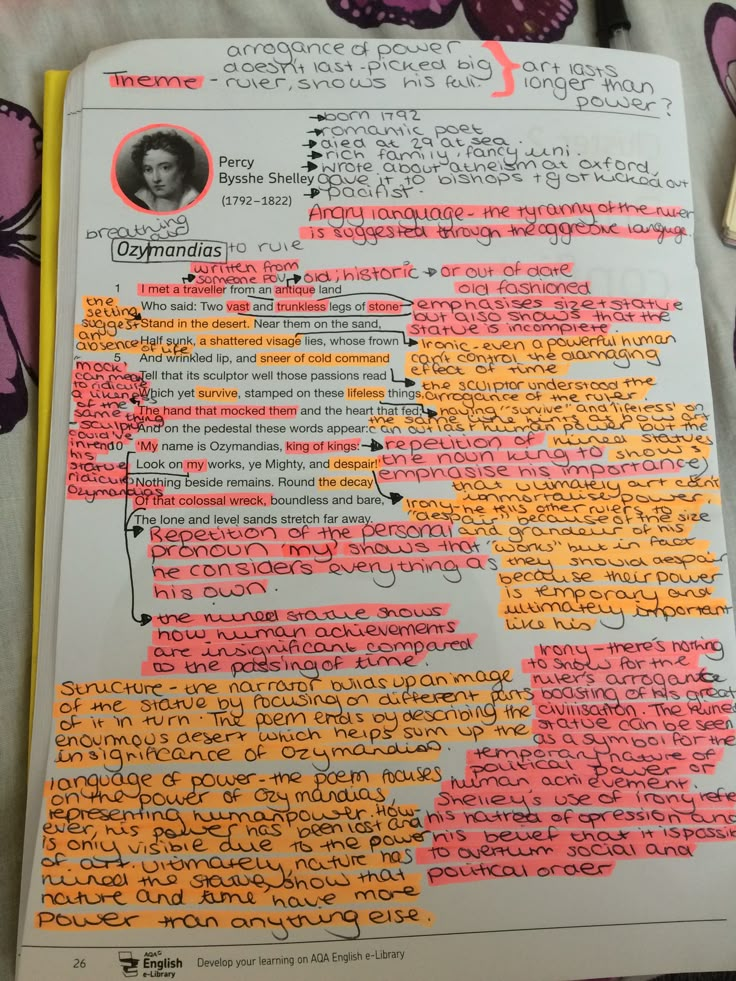 arrogance of power
doesn't last - picked big
Theme - ruler, shows his fall.
} art lasts
longer than
power?
→ born 1792
→ romantic poet
→ died at 29 at sea.
→ rich family, fancy uni.
→ wrote about atheism at oxford,
gave it to bishops + got kicked out
→ pacifist.
Percy
Bysshe Shelley
(1792–1822)
Angry language - the tyranny of the ruler
is suggested through the aggresive language.
breathing
air
Ozymandias to rule
written from
someone POV
→ old, historic → or out of date
old fashioned
1 I met a traveller from an antique land
Who said: Two vast and trunkless legs of stone
Stand in the desert. Near them on the sand,
Half sunk, a shattered visage lies, whose frown
5 And wrinkled lip, and sneer of cold command
Tell that its sculptor well those passions read
Which yet survive, stamped on these lifeless things,
The hand that mocked them and the heart that fed;
And on the pedestal these words appear:
10 'My name is Ozymandias, king of kings:
Look on my works, ye Mighty, and despair!'
Nothing beside remains. Round the decay
Of that colossal wreck, boundless and bare,
The lone and level sands stretch far away.
the
setting
suggest
an
absence
of life
"mock"
can mean
to ridicule
a likeness
of the
same thing
- sculptor
could've
his
statue
ridicule
Ozymandias
emphasises size + stature
but also shows that the
statue is incomplete.
Ironic - even a powerful human
can't control the damaging
effect of time
the sculptor understood the
arrogance of the ruler
having "survive" and lifeless on
the same line hints at how art
can outlast human power but the
ruined statues
shows
that ultimately art can't
immortalise power.
repetition of
the noun king to
emphasise his importance
Irony - he tells other rulers to
despair because of the size
and grandeur of his
"works" but in fact
they should despair
because their power
is temporary and
ultimately important
like his
Repetition of the personal
pronoun 'my' shows that
he considers everything as
his own.
the ruined statue shows
how human achievements
are insignificant compared
to the passing of time.
Irony - there's nothing
to show for the
ruler's arrogant
boasting of his great
civilisation. The ruined
statue can be seen
as a symbol for the
temporary nature of
political power or
human achievement.
Shelley's use of irony
his hatred of opression and
his belief that it is
to overturn social and
political order
Structure - the narrator builds up an image
of the statue by focusing on different parts
of it in turn. The poem ends by describing the
enourmous desert which helps sum up the
insignificance of Ozymandias.
language of power - the poem focuses
on the power of Ozymandias,
representing human power. How-
ever, his power has been lost and
is only visible due to the power
of art. ultimately, nature has
ruined the statue, show that
nature and time have more
power than anything else.
26
AQA
English
e-Library
Develop your learning on AQA English e-Library